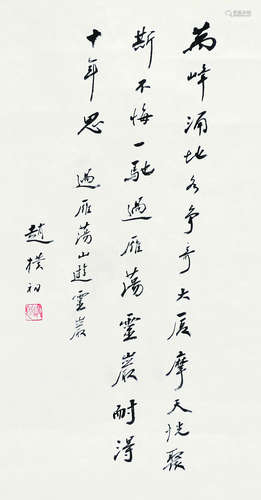 萬峰湧地各爭奇大厦摩天恍聚
斯不悔一馳過雁蕩靈巖耐得
十年思 過雁蕩山遊靈巖
趙樸初